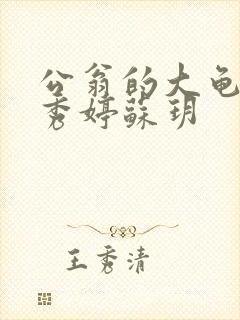 公翁的大龟
秀婷蘇玥
王秀清